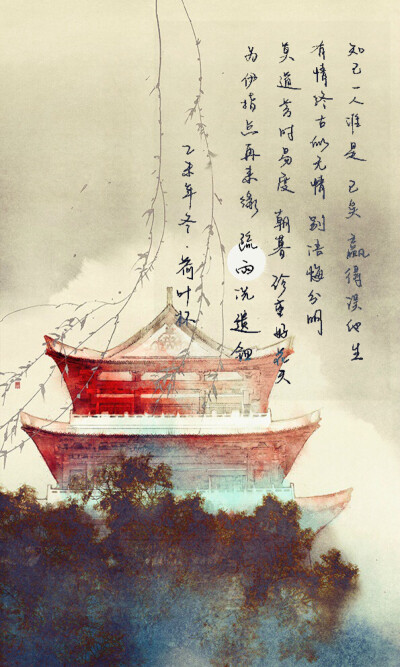 知己一人谁是 已矣 赢得误他生
有情终古似无情 别语悔分明
莫道芳时易度 朝暮 珍重好花天
为伊指点再来缘 疏雨洗遗钿
乙未年冬·荷叶杯